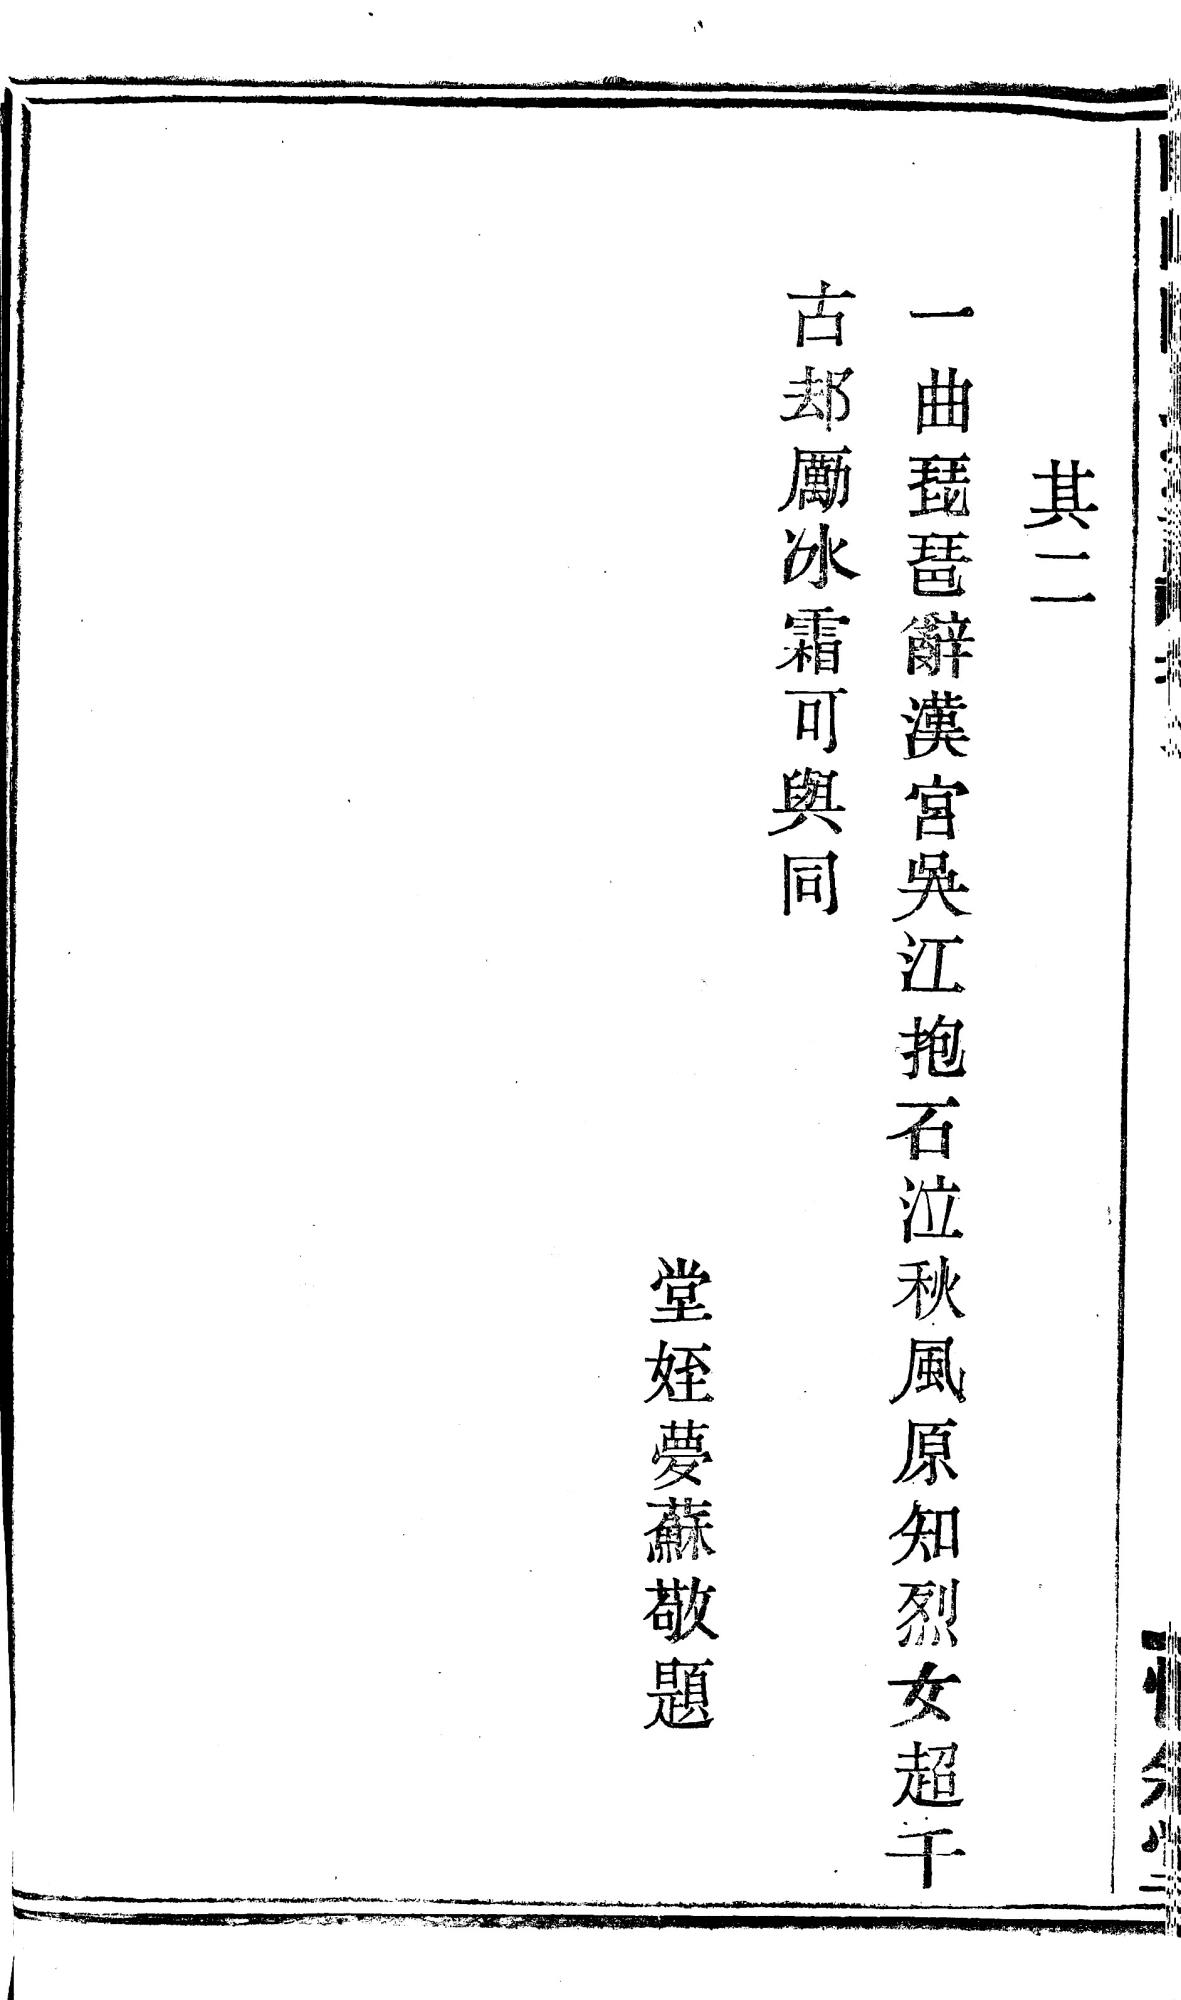 其二
一曲琵琶辭漢宮吳江抱石泣秋風原知烈女超千
古却厲冰霜可與同
堂姪夢蘇敬題